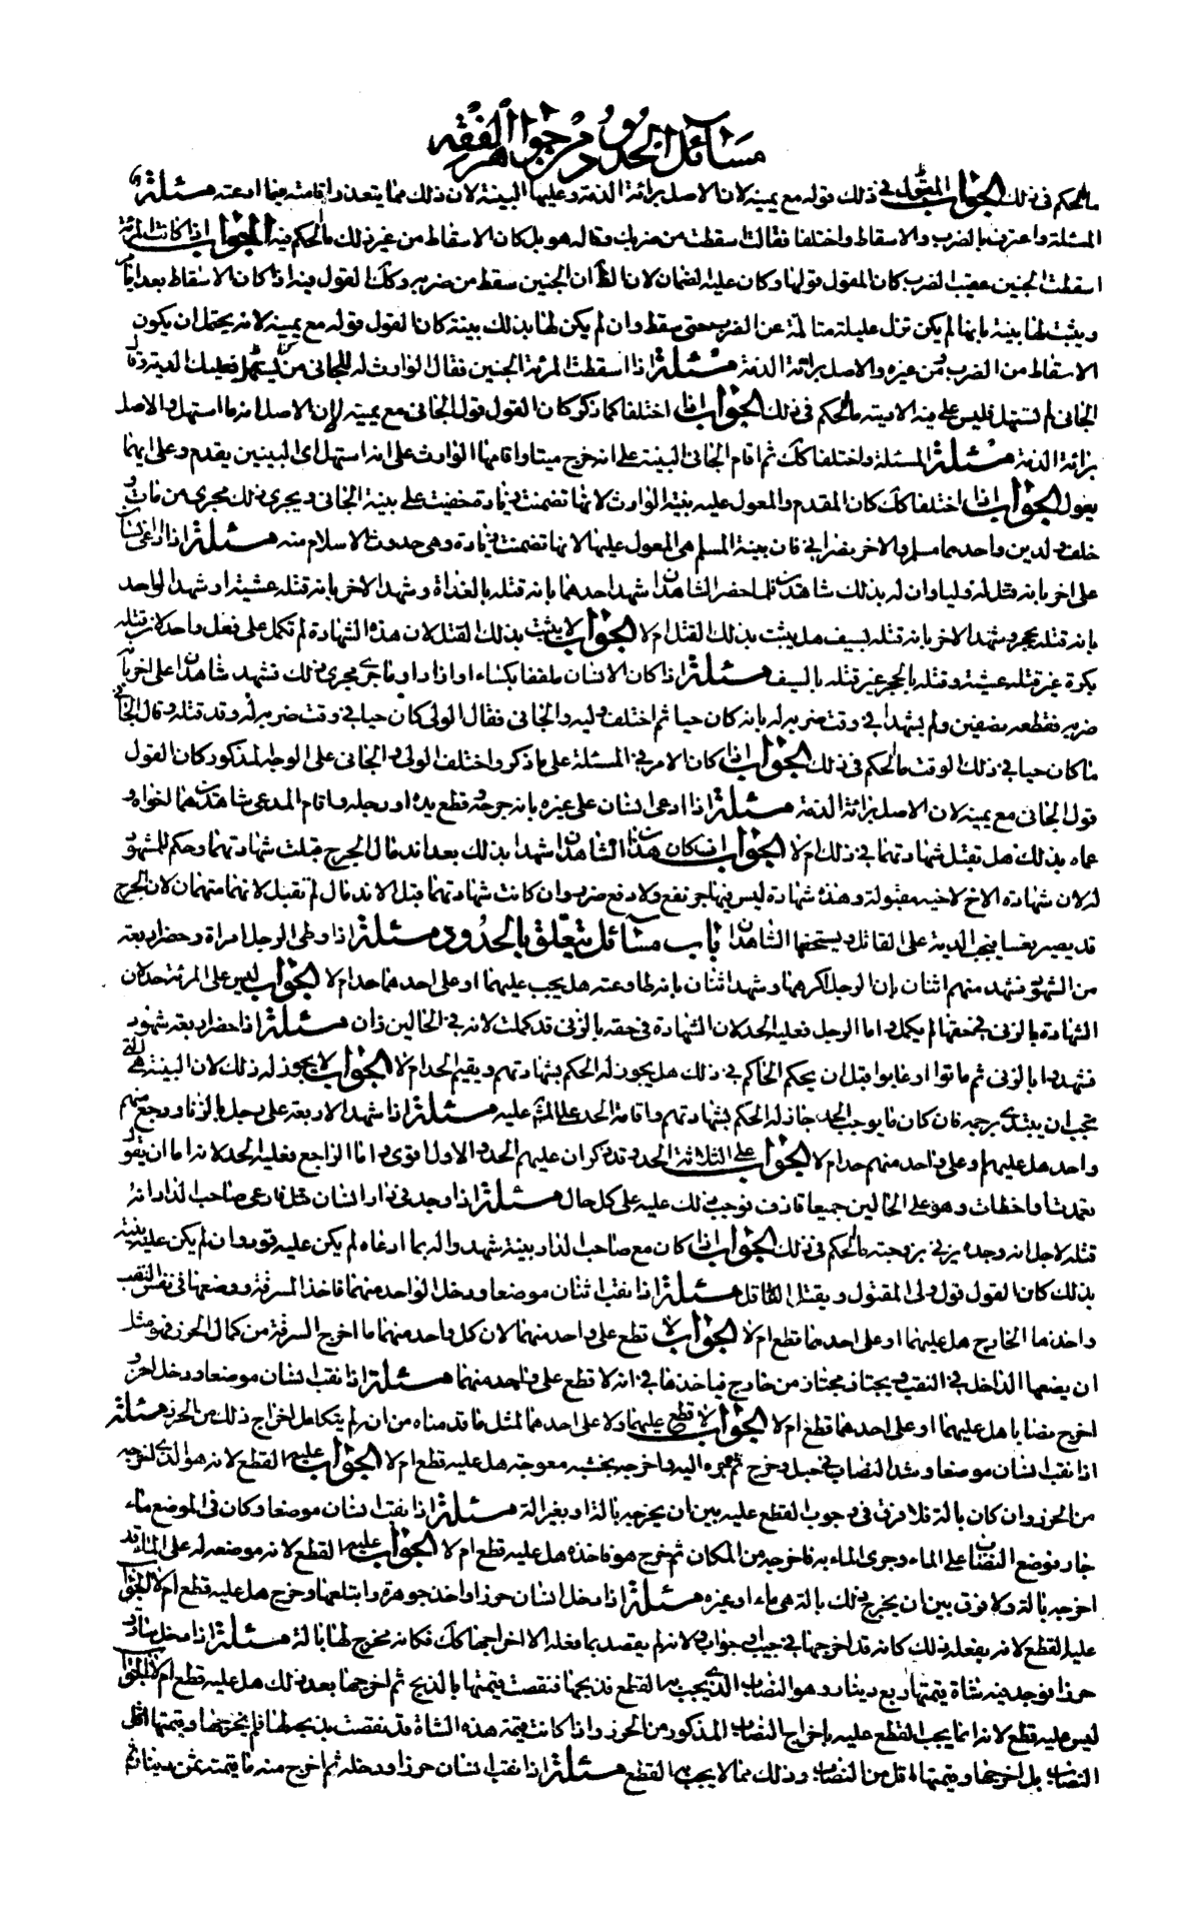 مسائل الحدود من جواهر الفقه
ما الحكم فى ذلك الجواب القول فى ذلك قوله مع يمينه لان الاصل برائة الذمة وعليها البينة لان ذلك مما يتعذر اقامته فيما ادعته مسئلة
المسئلة واعترف بالضرب والاسقاط واختلفا فقالت اسقطت من ضربك وقال هو بل كان الاسقاط من غير ذلك ما الحكم فيه الجواب اذا كانت المرئة
اسقطت الجنين عقيب الضرب كان القول قولها وكان عليه الضمان لان الظ ان الجنين سقط من ضربه وكك القول فيه اذا كان الاسقاط بعد ايام
ويثبت لها بينة بانها لم يكن تزل عليلة متالمة عن الضرب حتى سقط وان لم يكن لها بذلك بينة كان القول قوله مع يمينه لانه يحتمل ان يكون
الاسقاط من الضرب ومن غيره والاصل برائة الذمة مسئلة اذا اسقطت المرئة الجنين فقال الوارث له للجانى استهل فعليك الدية وقال
الجانى لم تستهل فليس على فيه الا ديته ما الحكم فى ذلك الجواب اذا اختلفا كما ذكر كان القول قول الجانى مع يمينه لان الاصل انه ما استهل والاصل
برائة الذمة مسئلة المسئلة واختلفا كك ثم اقام الجانى البينة على انه خرج ميتا واقامها الوارث على انه استهل اى البينتين يقدم وعلى ايهما
يعول الجواب اذا اختلفا كك كان المقدم والمعول عليه بينة الوارث لانها تضمنت زيادة مخفيت على بينة الجانى ويجرى ذلك مجرى من مات و
خلف ولدين واحدهما مسلم والاخر نصرانى فان بينة المسلم هى المعول عليها لانها تضمنت زيادة وهى حدوث الاسلام منه مسئلة اذا ادعى انسان
على اخر بانه قتل له وليا وان له بذلك شاهدين فلما حضر الشاهدان شهد احدهما بانه قتله بالغداة وشهد الاخر بانه قتله عشية او شهد الواحد
بانه قتله بحجر وشهد الاخر بانه قتله بسيف هل يثبت بذلك القتل ام لا الجواب لا يثبت بذلك القتل لان هذه الشهادة لم تكمل على فعل واحد لان قتله
بكرة غير قتله عشية وقتله بالحجر غير قتله بالسيف مسئلة اذا كان الانسان ملففا بكساء او ازار او ما جرى مجرى ذلك فشهد شاهدان على اخر بانه
ضربه فقطعه نصفين ولم يشهدا فى وقت ضربه له بانه كان حيا ثم اختلف وليه والجانى فقال الولى كان حيا فى وقت ضربه له وقد قتله وقال الجانى
ما كان حيا فى ذلك الوقت ما الحكم فى ذلك الجواب اذا كان الامر فى المسئلة على ما ذكر واختلف الولى والجانى على الوجه المذكور كان القول
قول الجانى مع يمينه لان الاصل برائة الذمة مسئلة اذا ادعى انسان على غيره بانه جرحه وقطع يده او رجله واقام المدعى شاهدين هما اخواه و
عماه بذلك هل تقبل شهادتهما فى ذلك ام لا الجواب ان كان هذان الشاهدان شهدا بذلك بعد اندمال الجرح قبلت شهادتهما وحكم للمشهود
له لان شهادة الاخ لاخيه مقبولة وهذه شهادة ليس فيها جر نفع ولا دفع ضرر وان كانت شهادتهما قبل الاندمال لم تقبل لانهما متهمان لان الجرح
قد يصير نفسا فيجب الدية على القاتل ويستحقها الشاهدان باب مسائل يتعلق بالحدود مسئلة اذا وطى الرجل امراة وحضر اربعة
من الشهود فشهد منهم اثنان بان الرجل اكرهها وشهد اثنان بانها طاوعته هل يجب عليهما او على احدهما حد ام لا الجواب ليس على المرئة حد لان
الشهادة بالزنى فى حقها لم يكمل واما الرجل فعليه الحد لان الشهادة فى حقه بالزنى قد كملت لانه فى الحالين زان مسئلة اذا حضر اربعة شهود
فشهدوا بالزنى ثم ماتوا او غابوا قبل ان يحكم الحاكم فى ذلك هل يجوز له الحكم بشهادتهم ويقيم الحد ام لا الجواب لا يجوز له ذلك لان البينة هى التى
يجب ان يبتدى برجمه فان كان ما يوجب الحد جاز له الحكم بشهادتهم واقامة الحد على المشهود عليه مسئلة اذا شهد الاربعة على رجل بالزنا ورجع منهم
واحد هل عليهم او على واحد منهم حد ام لا الجواب على الثلاثة الحد وقد ذكر ان عليهم الحد والاول اقوى واما الراجع فعليه الحد لانه اما ان يقول
تعمدت او اخطات وهو على الحالين جميعا قاذف فوجب ذلك عليه على كل حال مسئلة اذا وجد فى دار انسان قتيل فادعى صاحب الدار انه
قتله لاجل انه وجده يزنى بزوجته ما الحكم فى ذلك الجواب اذا كان مع صاحب الدار بينة شهد واله بما ادعاه لم يكن عليه قود وان لم يكن عليه بينة
بذلك كان القول قول ولى المقتول ويقتل القاتل مسئلة اذا نقب اثنان موضعا ودخل الواحد منهما فاخذ السرقة ووضعها فى نفس النقب
واخذها الخارج هل عليهما او على احدهما قطع ام لا الجواب لا قطع على واحد منهما لان كل واحد منهما ما اخرج السرقة من كمال الحرز فهو مثل
ان يضعها الداخل فى النقب ويجتاز مجتاز من خارج فياخذها فى انه لا قطع على واحد منهما مسئلة اذا نقب انسان موضعا ودخل اخر و
اخرج نصابا هل عليهما او على احدهما قطع ام لا الجواب لا قطع عليهما ولا على احدهما لمثل ما قدمناه من ان لم يتكامل اخراج ذلك من الحرز مسئلة
اذا نقب انسان موضعا وشد النصاب فى حبل وخرج ثم جره اليه واخرجه بخشبة معوجة هل عليه قطع ام لا الجواب عليه القطع لانه هو الذى اخرجه
من الحرز وان كان بالة فلا فرق فى وجوب القطع عليه بين ان يخرجه بالة او بغير الة مسئلة اذا نقب انسان موضعا وكان فى الموضع ماء
جار فوضع النصاب على الماء وجرى الماء به فاخرجه من المكان ثم خرج هو فاخذه هل عليه قطع ام لا الجواب عليه القطع لانه موضعه له على الماء قد
اخرجه بالة ولا فرق بين ان يخرج ذلك بالة هى ماء او غيره مسئلة اذا دخل انسان حرزا واخذ جوهرة وابتلعها وخرج هل عليه قطع ام لا الجواب
عليه القطع لانه بفعله ذلك كانه قد اخرجها فى جيب او جراب ولانه لم يقصد بما فعله الا اخراجها كك فكانه مخرج لها بالة مسئلة اذا دخل سارق
حرزا فوجد فيه شاة قيمتها ربع دينار وهو النصاب الذى يجب به القطع فذبحها فنقصت قيمتها بالذبح ثم اخرجها بعد ذلك هل عليه قطع ام لا الجواب
ليس عليه قطع لانه انما يجب القطع عليه باخراج النصاب المذكور من الحرز واذا كانت قيمة هذه الشاة قد نقصت بذبحه لها فلم يخرجها وقيمتها
النصاب بل اخرجها وقيمتها اقل من النصاب وذلك مما لا يجب به القطع مسئلة اذا نقب انسان حرزا ودخله ثم اخرج منه ما قيمته ثمن دينار ثم